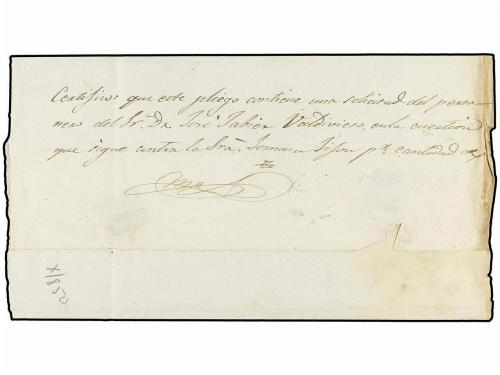 Certifico: que este pliego contiene una solicitud del perso-
nero del Sr. Dr. José Jabier Valdivieso, en la cuestion
que sigue contra la Sra. pr. cantidad de